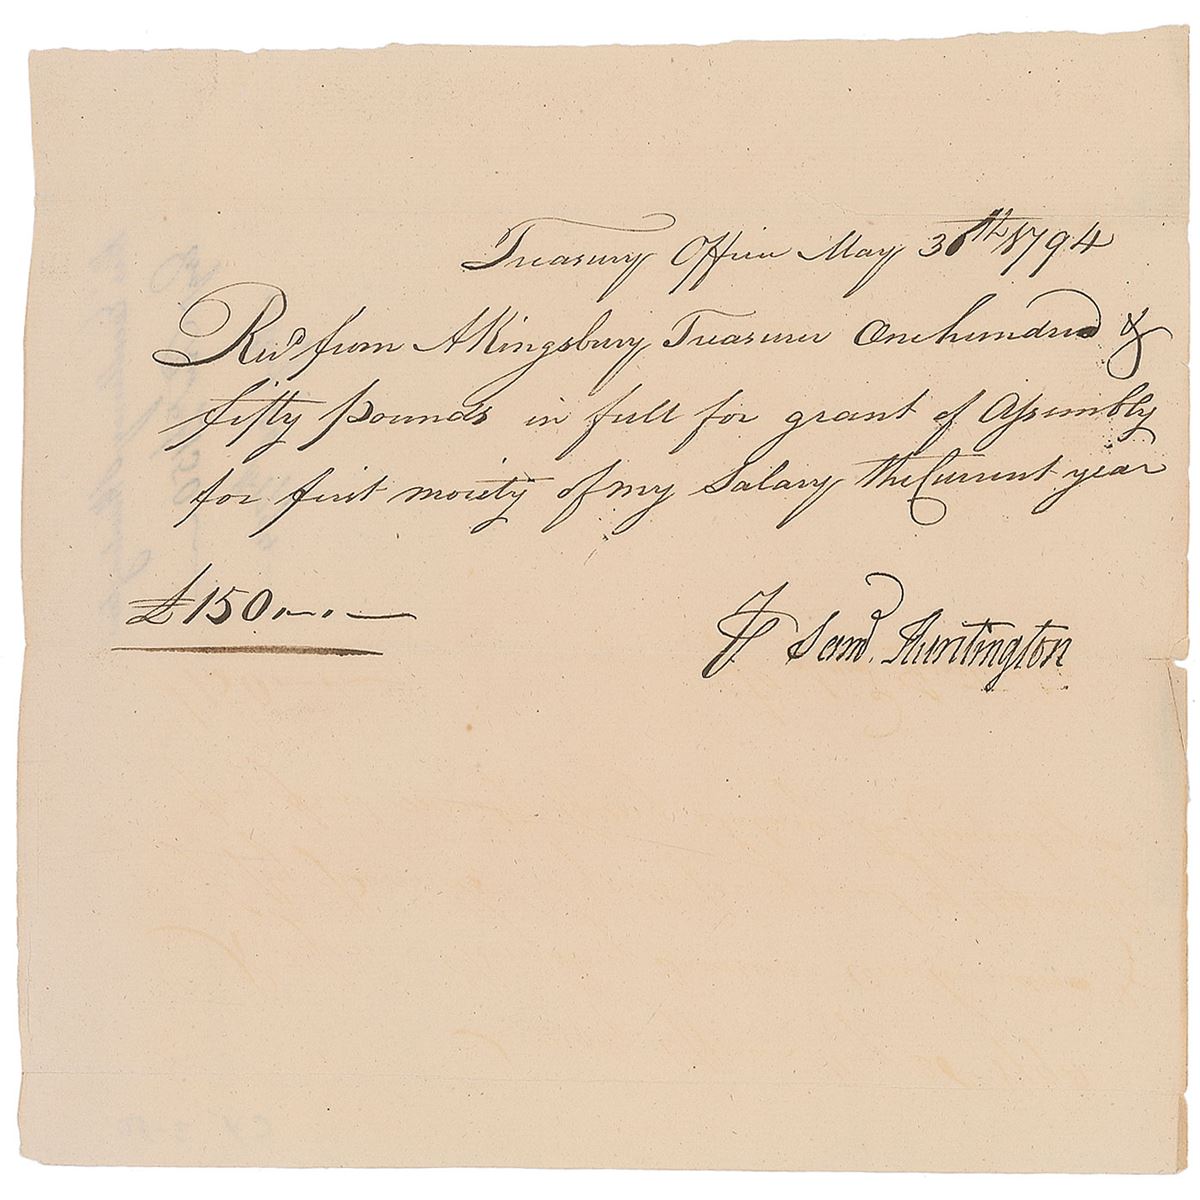 Treasury Office May 30th 1794
Recd from A Kingsbury Treasurer One hundred &
fifty pounds in full for grant of Assembly
for first moiety of my Salary the Current year
£150—.—.—
Saml. Huntington